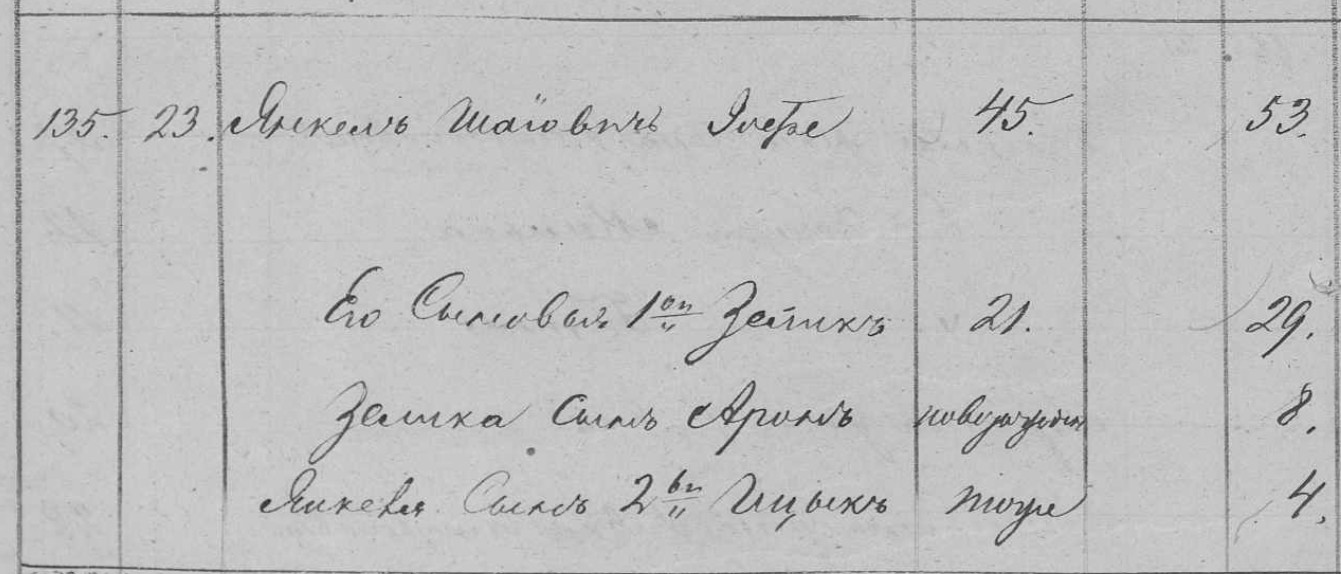 135. 23. Янкель Шаіовичъ 45. 53.
Его Сыновья 1ой Зеликъ 21. 29.
Зелика Сынъ Аронъ новорожден 8.
Янкеля Сынъ 2ой Ицыкъ тоже 4.